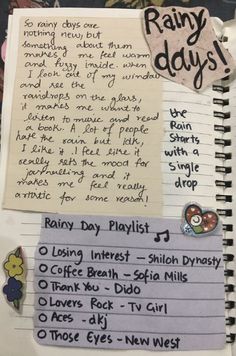 Rainy
days!
So rainy days are
nothing new, but
something about them
makes me feel warm
and fuzzy inside. when
I look out of my window
and see the
raindrops on the glass,
it makes me want to
listen to music and read
a book. A lot of people
hate the rain but idk,
I like it. I feel like it
really sets the mood for
journalling and it
makes me feel really
artistic for some reason!
the
Rain
Starts
with a
Single
drop
Rainy Day Playlist
Losing Interest - Shiloh Dynasty
Coffee Breath - Sofia Mills
Thank You - Dido
Lovers Rock - Tv Girl
Aces - dkj
Those Eyes - New West